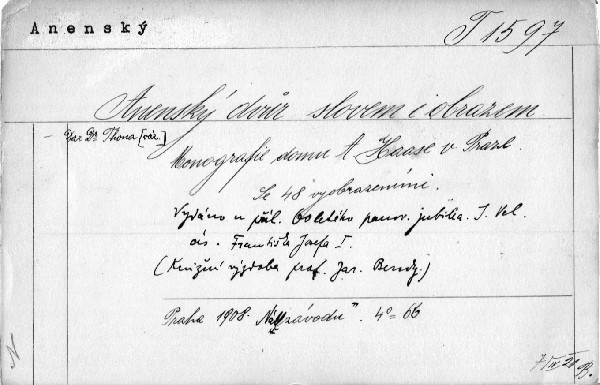 Anenský
T 1597
Anenský dvůr slovem i obrazem
Dar Dr Thona [váz.]
Monografie domu A Haase v Praze.
Se 48 vyobrazeními.
Vydáno u příl. 60letého panov. jubilea J. Vel.
cís. Františka Josefa I.
(Knižní výzdoba prof. Jar. Bendy.)
Praha 1908. Nákl. závodu". 4° 66